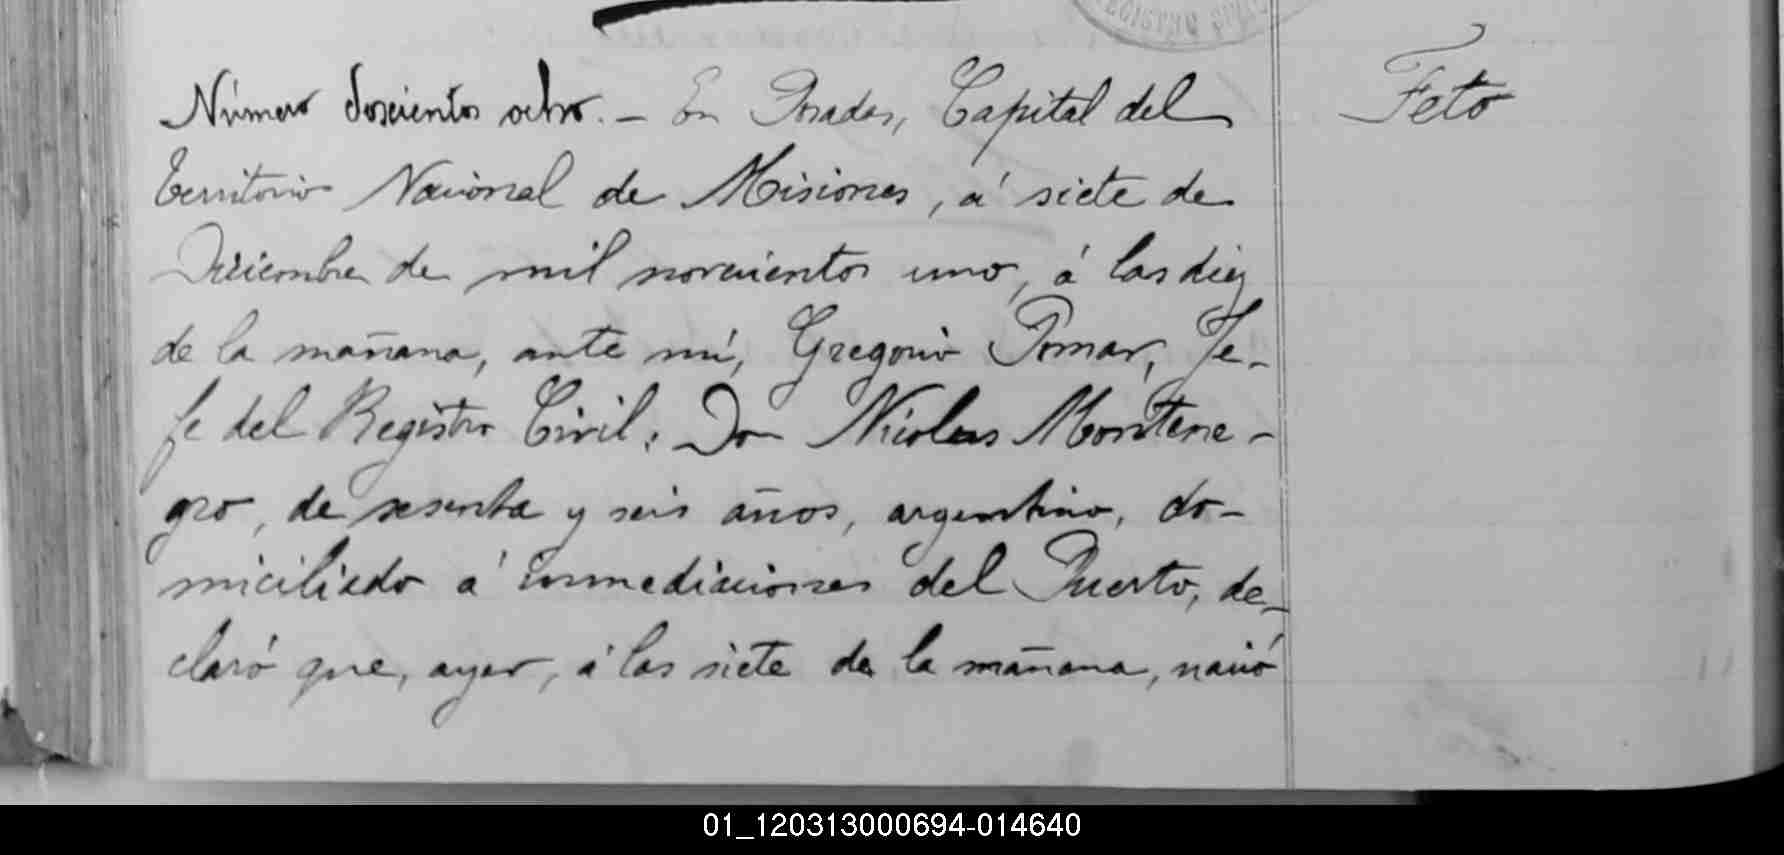 REGISTRO
Número doscientos ocho. — En Posadas, Capital del
Territorio Nacional de Misiones, á siete de
Diciembre de mil novecientos uno, á las diez
de la mañana, ante mí, Gregorio Pomar, Je-
fe del Registro Civil: Don Nicolas Montene-
gro, de sesenta y seis años, argentino, do-
miciliado á inmediaciones del Puerto, de-
claró que, ayer, á las siete de la mañana, nació
Feto
01_120313000694-014640